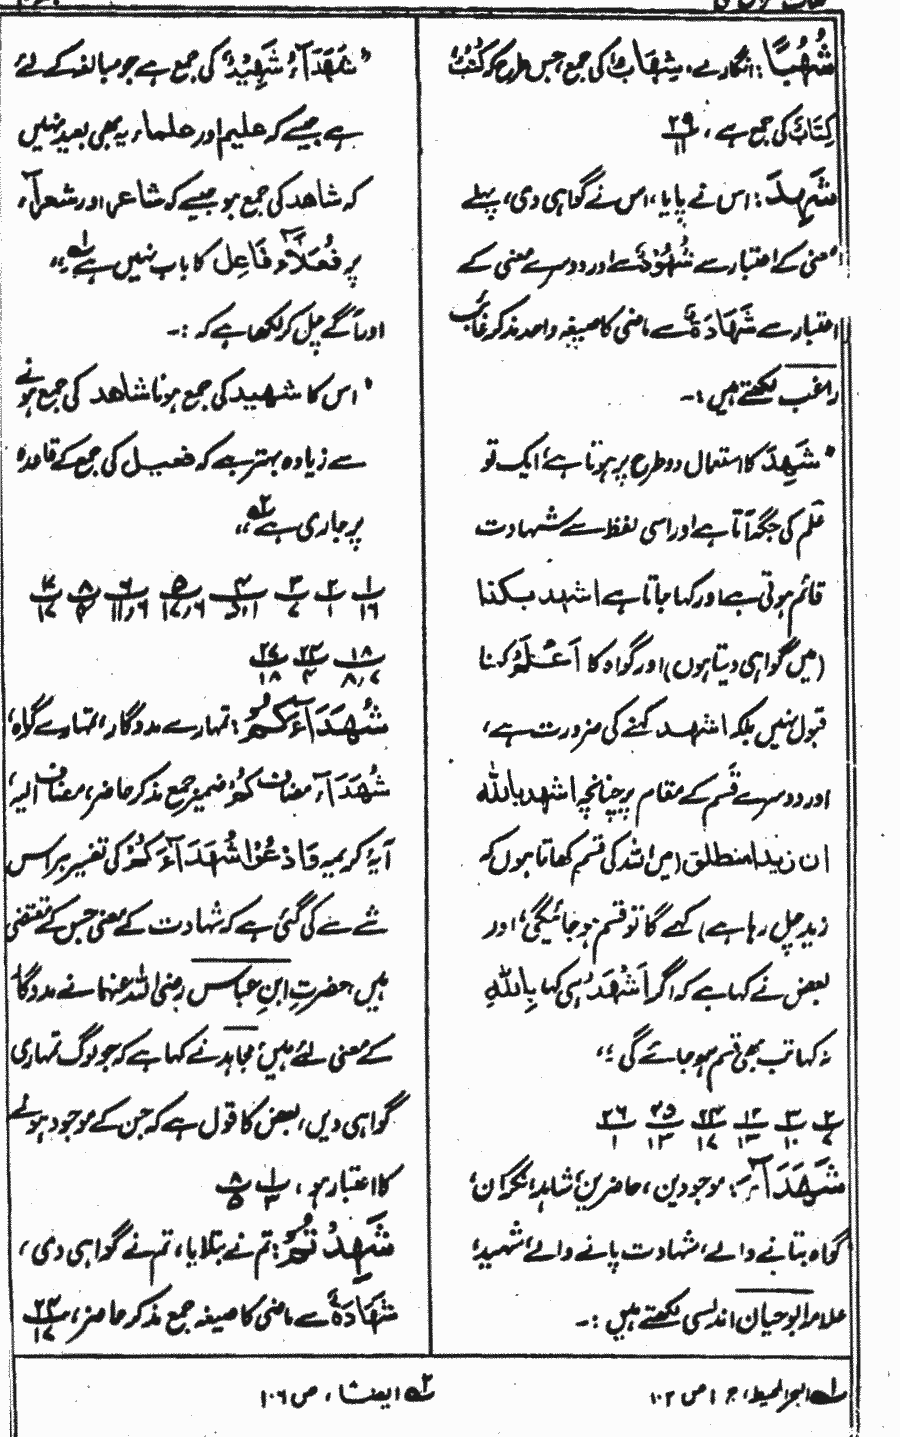 شُهُبًا: انگارے، شِهَابٌ کی جمع، جس طرح کُتُبٌ
کِتَابٌ کی جمع ہے، ۲۹/۱۱
شَهِدَ: اس نے پایا، اس نے گواہی دی، پہلے
معنی کے اعتبار سے شُهُوْدٌ سے اور دوسرے معنی کے
اعتبار سے شَهَادَةٌ سے ماضی کا صیغہ واحد مذکر غائب
راغب لکھتے ہیں:۔
"شَهِدَ کا استعمال دو طرح پر ہوتا ہے، ایک تو
عِلم کی جگہ آتا ہے اور اسی لفظ سے شہادت
قائم ہوتی ہے اور کہا جاتا ہے اشهد بکذا
(میں گواہی دیتا ہوں) اور گواہ کا اَعْلَمُ کہنا
قبول نہیں بلکہ اشهد کہنے کی ضرورت ہے،
اور دوسرے قَسم کے مقام پر چنانچہ اشهد بالله
ان زیدا منطلق (میں اللہ کی قسم کھاتا ہوں کہ
زید چل رہا ہے) کہے گا تو قسم ہو جائیگی، اور
بعض نے کہا ہے کہ اگر اَشْهَدُ ہی کہا بِاللهِ
نہ کہا تب بھی قسم ہو جائے گی"،
۲/۷ ۳/۱۰ ۱۲/۱۳ ۲۴/۱۷ ۲۵/۱۳ ۲۶/۱
شُهَدَآءَ: موجودین، حاضرین، شاہد، نگران،
گواہ بنانے والے، شہادت پانے والے، شہید،
علامہ ابوحیان اندلسی لکھتے ہیں:۔
"شُهَدَآءُ شَهِیْدٌ کی جمع ہے جو مبالغہ کے لئے
ہے جیسے کہ علیم اور علماء، یہ بھی بعید نہیں
کہ شاهد کی جمع ہو جیسے کہ شاعر اور شعرآء،
پر فُعَلَآء فَاعِل کا باب نہیں ہے"، ۱؎
اور آگے چل کر لکھا ہے کہ:۔
"اس کا شهید کی جمع ہونا شاهد کی جمع ہونے
سے زیادہ بہتر ہے کہ فعیل کی جمع کے قاعدہ
پر جاری ہے"، ۲؎
۱/۱۶ ۲/۱ ۳/۷ ۴ ۵/۶،۱۷ ۶/۶،۱۱ ۸ ۱۷
۱۸/۷،۸ ۲۴/۴ ۲۷/۱۸
شُهَدَآءَکُمْ: تمہارے مددگار، تمہارے گواہ،
شُهَدَآءَ مضاف کُمْ ضمیر جمع مذکر حاضر، مضاف الیہ،
آیۂ کریمہ وَادْعُوْا شُهَدَآءَکُمْ کی تفسیر ہر اس
شے سے کی گئی ہے کہ شہادت کے معنی جس کے مقتضی
ہیں، حضرت ابن عباس رضی اللہ عنہما نے مددگار
کے معنی لئے ہیں، مجاہد نے کہا ہے کہ جو لوگ تمہاری
گواہی دیں، بعض کا قول ہے کہ جن کے موجود ہونے
کا اعتبار ہو، ۱/۳ ۸/۵
شَهِدْتُمْ: تم نے بتلایا، تم نے گواہی دی،
شَهَادَةٌ سے ماضی کا صیغہ جمع مذکر حاضر، ۲۴/۱۷
۱؎ البحر المحیط، ج ۱ ص ۱۰۲
۲؎ ایضًا، ص ۱۰۶